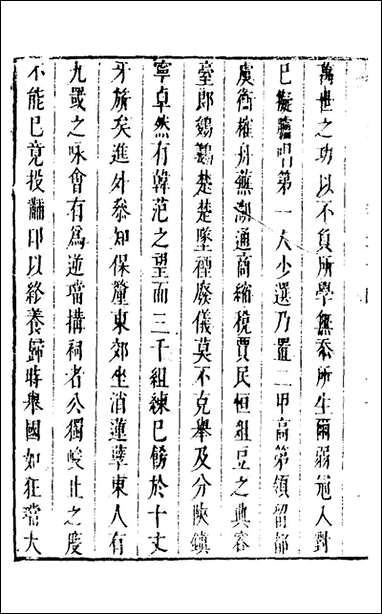 萬世之功以不負所學無忝所生爾弱冠入對
已擬臚唱第一人少選乃置二甲高第領留都
虞衡榷舟蕪湖通商縮稅賈民恒俎豆之典容
臺郎鷄鶿楚楚墜禋廢儀莫不克舉及分陝鎮
寧卓然有韓范之望而三千組練已儲於十丈
牙旂矣進外參知保釐東郊坐消蓮孽東人有
九罭之咏會有為逆璫搆祠者公獨峻止之度
不能已竟投劾印以終養歸時舉國如狂璫大